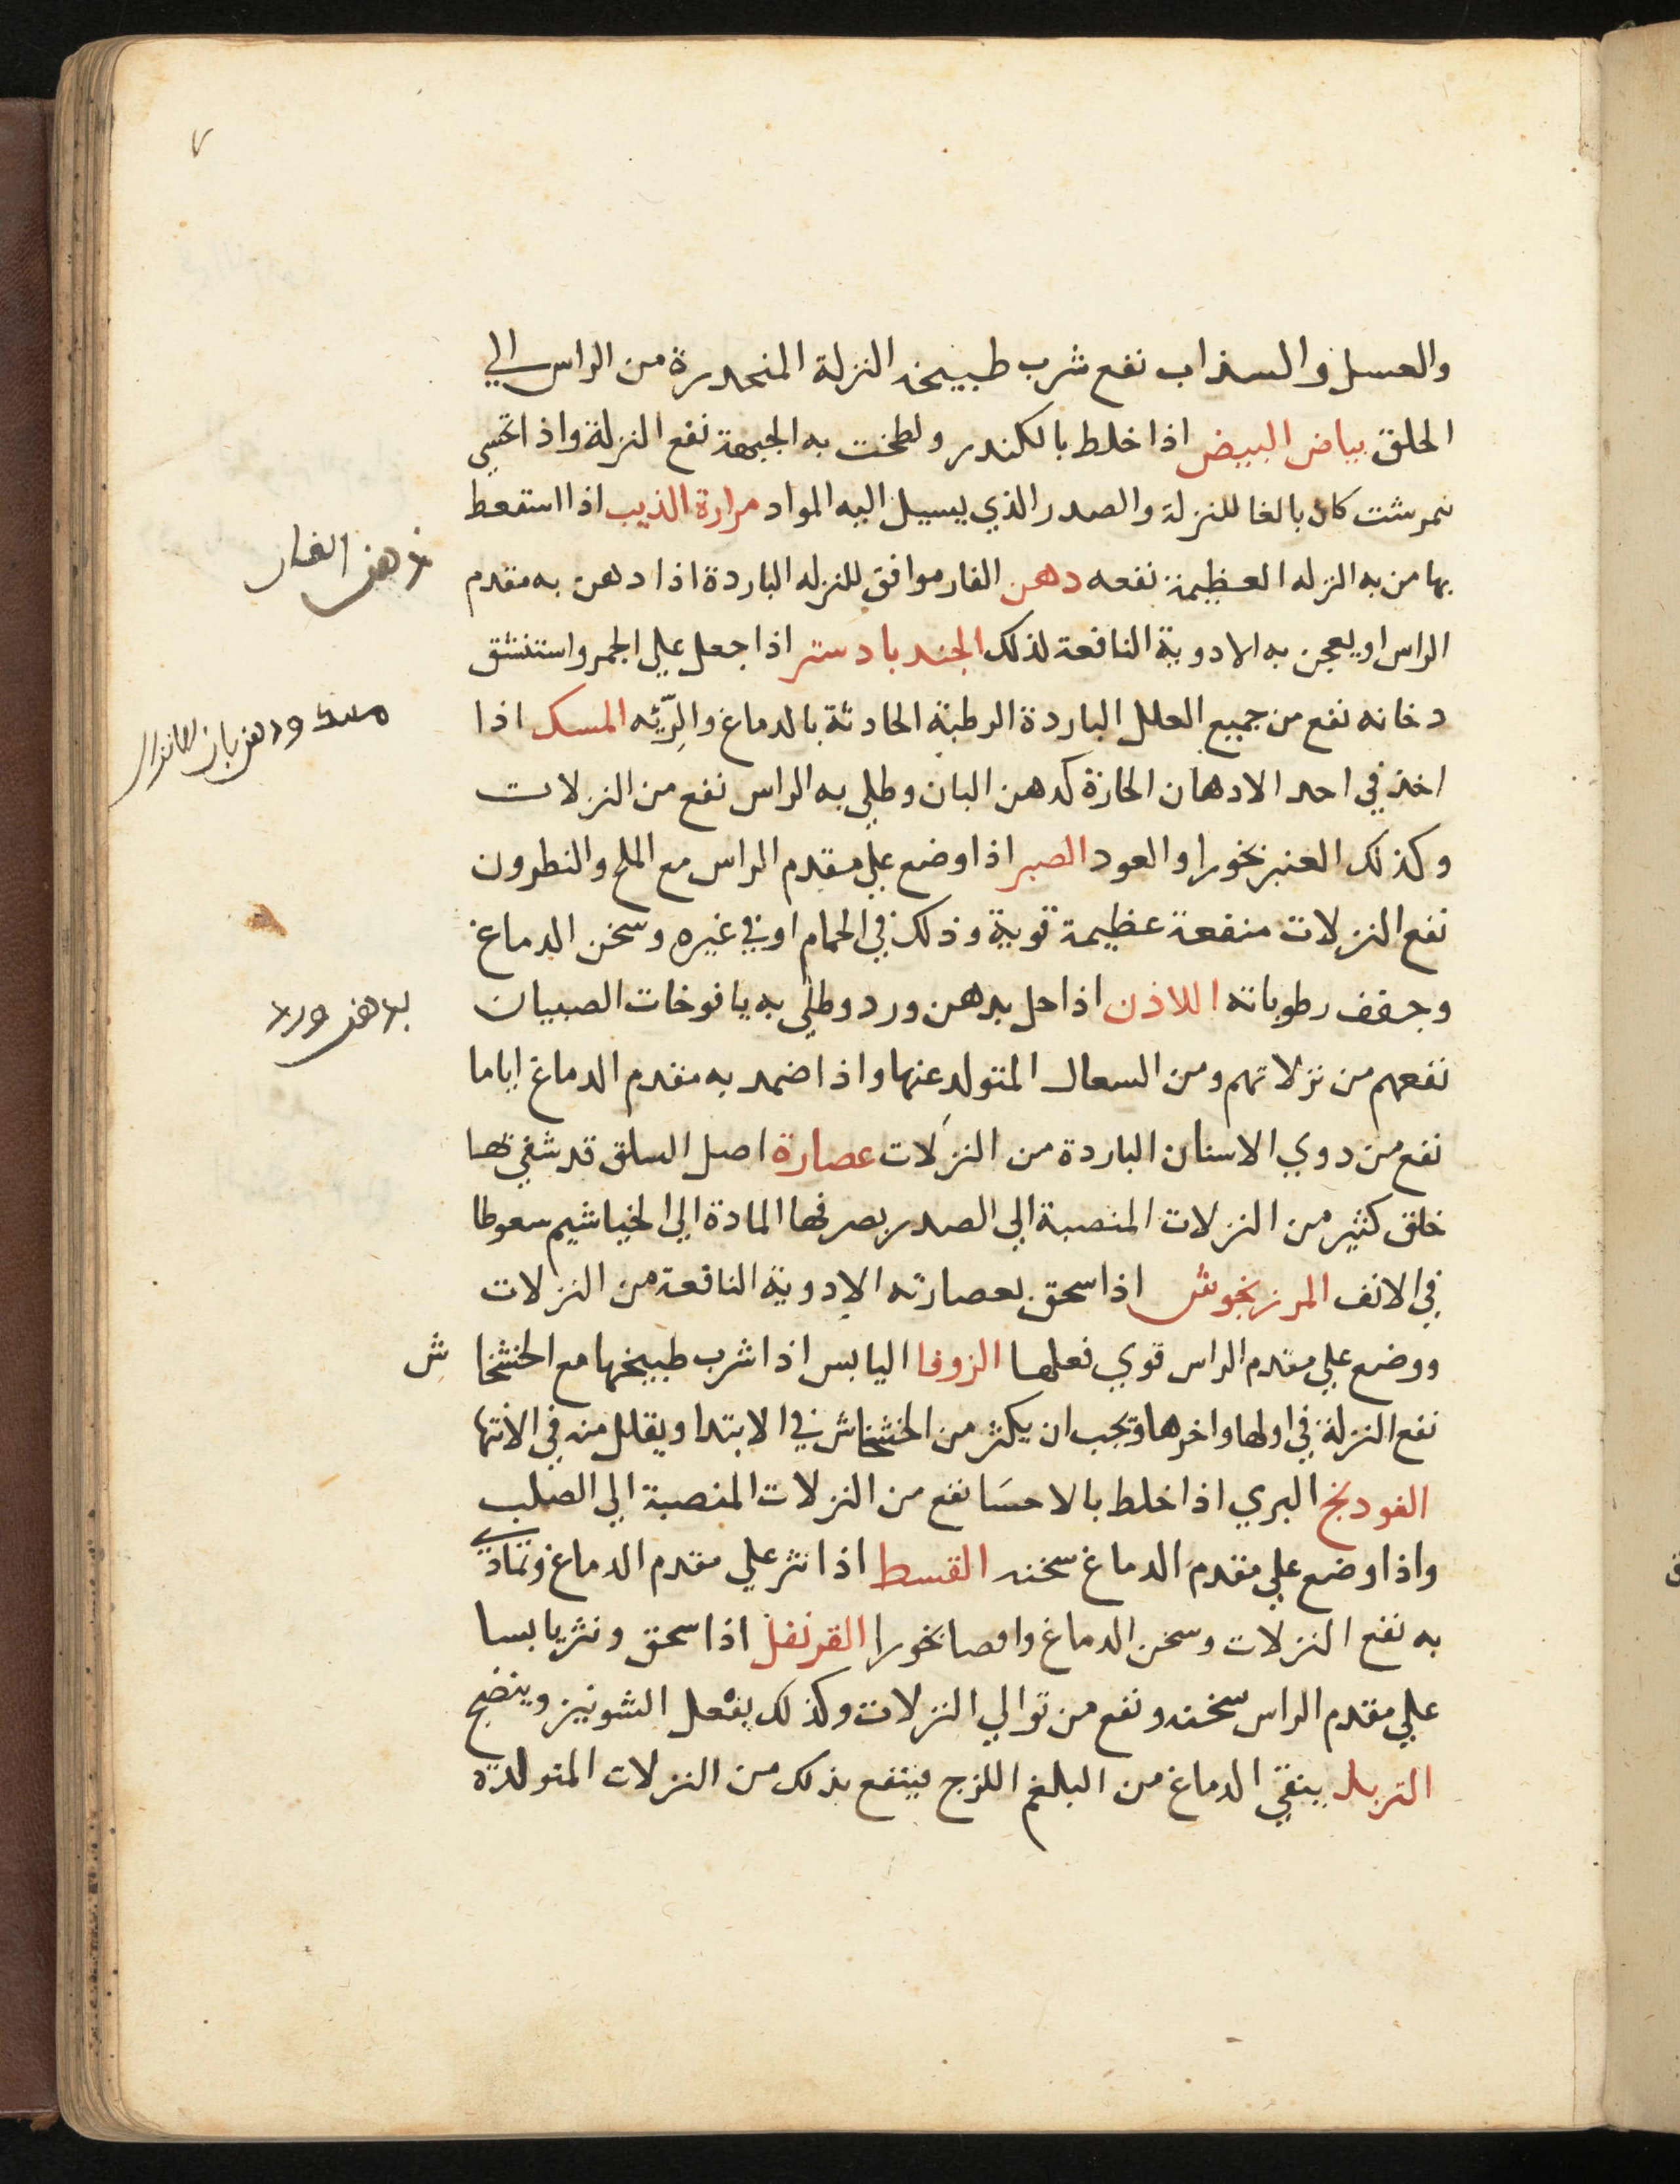 ٧
والعسل والسذاب نفع شرب طبيخه النزلة المنحدرة من الراس الي
الحلق بياض البيض اذا خلط بالكندر ولطخت به الجبهة نفع النزلة واذا تحسي
نمرشت كان بالغا للنزلة والصدر الذي يسيل اليه المواد مرارة الذيب اذا استعط
بها من به النزله العظيمة نفعه دهن الغار موافق للنزله الباردة اذا دهن به مقدم
دهن الغار
الراس او يعجن به الادوية النافعة لذلك الجندبادستر اذا جعل علي الجمر واستنشق
دخانه نفع من جميع العلل الباردة الرطبة الحادثة بالدماغ والرّئه المسك اذا
مسك ودهن بان
اخذ في احد الادهان الحارة كدهن البان وطلي به الراس نفع من النزلات
وكذلك العنبر بخورا والعود الصبر اذا وضع علي مقدم الراس مع الملح والنطرون
نفع النزلات منفعة عظيمة قوية وذلك في الحمام او في غيره وسخن الدماغ
وجفف رطوباته اللاذن اذا حل بدهن ورد وطلي به يافوخات الصبيان
بدهن ورد
نفعهم من نزلاتهم ومن السعال المتولد عنها واذا ضمد به مقدم الدماغ اياما
نفع من دوي الاسنان الباردة من النزلات عصارة اصل السلق قد شفي بها
خلق كثير من النزلات المنصبة الي الصدر بصرفها المادة الي الخياشيم سعوطا
في الانف المرزنجوش اذا سحق بعصارته الادوية النافعة من النزلات
ووضع علي مقدم الراس قوي فعلها الزوفا اليابس اذا شرب طبيخها مع الخشخا ش
نفع النزلة في اولها واخرها ويجب ان يكثر من الخشخاش في الابتدا ويقلل منه في الانتها
الفودنج البري اذا خلط بالاحسَا نفع من النزلات المنصبة الي الصلب
واذا وضع علي مقدم الدماغ سخنه القسط اذا نثر علي مقدم الدماغ وتمادي
به نفع النزلات وسخن الدماغ وامصا بخورا القرنفل اذا سحق ونثر يابسا
علي مقدم الراس سخنه ونفع من توالي النزلات وكذلك يفعل الشونيز وينضج
التربد ينقي الدماغ من البلغم اللزج فينتفع بذلك من النزلات المتولدة